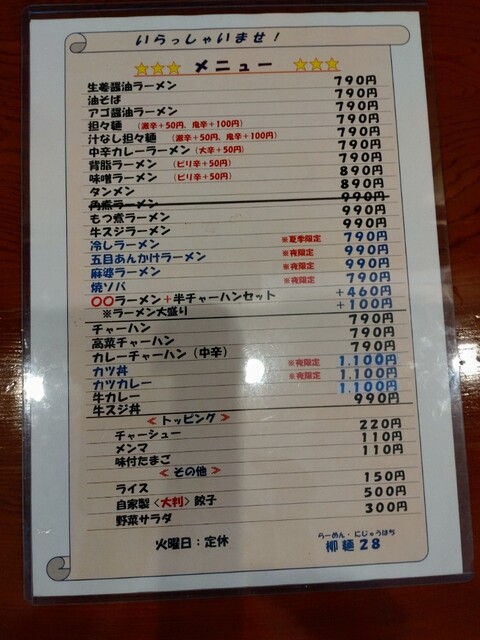 いらっしゃいませ！
★★★ メニュー ★★★
生姜醤油ラーメン 790円
油そば 790円
アゴ醤油ラーメン 790円
担々麺 （激辛＋50円、鬼辛＋100円） 790円
汁なし担々麺 （激辛＋50円、鬼辛＋100円） 790円
中辛カレーラーメン（大辛＋50円） 790円
背脂ラーメン （ピリ辛＋50円） 790円
味噌ラーメン （ピリ辛＋50円） 890円
タンメン 890円
角煮ラーメン 990円
もつ煮ラーメン 990円
牛スジラーメン 990円
冷しラーメン ※夏季限定 790円
五目あんかけラーメン ※夜限定 990円
麻婆ラーメン ※夜限定 990円
焼ソバ ※夜限定 790円
〇〇ラーメン＋半チャーハンセット ＋460円
※ラーメン大盛り ＋100円
チャーハン 790円
高菜チャーハン 790円
カレーチャーハン（中辛） 790円
カツ丼 ※夜限定 1,100円
カツカレー ※夜限定 1,100円
牛カレー 1,100円
牛スジ丼 990円
＜トッピング＞
チャーシュー 220円
メンマ 110円
味付たまご 110円
＜その他＞
ライス 150円
自家製＜大判＞餃子 500円
野菜サラダ 300円
火曜日：定休
らーめん・にじゅうはち
柳麺28